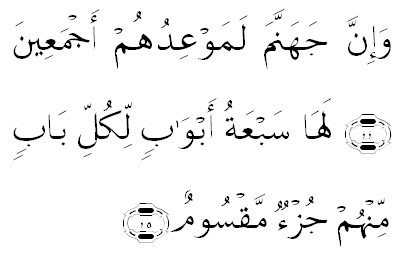 وَإِنَّ جَهَنَّمَ لَمَوْعِدُهُمْ أَجْمَعِينَ
١١ لَهَا سَبْعَةُ أَبْوَٰبٍ لِّكُلِّ بَابٍ
مِّنْهُمْ جُزْءٌ مَّقْسُومٌ ١٥